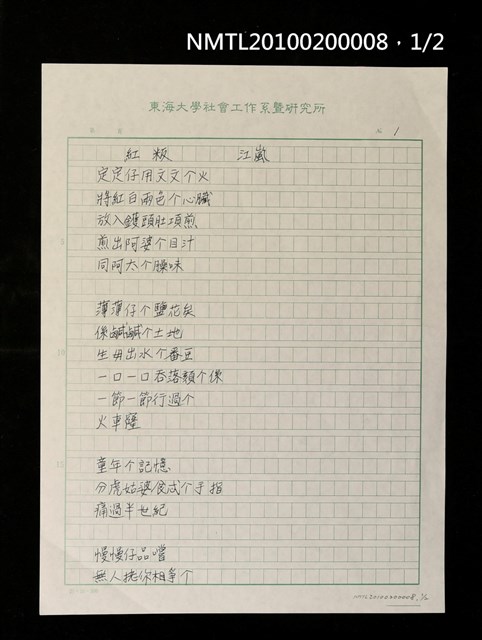 NMTL20100200008，1/2
東海大學社會工作系暨研究所
1
紅粄 江嵐
定定仔用文文个火
將紅白兩色个心臟
放入鑊頭肚項煎
煎出阿婆个目汁
同阿太个臊味
薄薄仔个鹽花矣
像鹹鹹个土地
生毋出水个番豆
一口一口吞落頷个像
一節一節行過个
火車窿
童年个記憶
分虎姑婆食忒个手指
痛過半世紀
慢慢仔品嚐
無人挷你相爭个
NMTL20100200008, 1/2